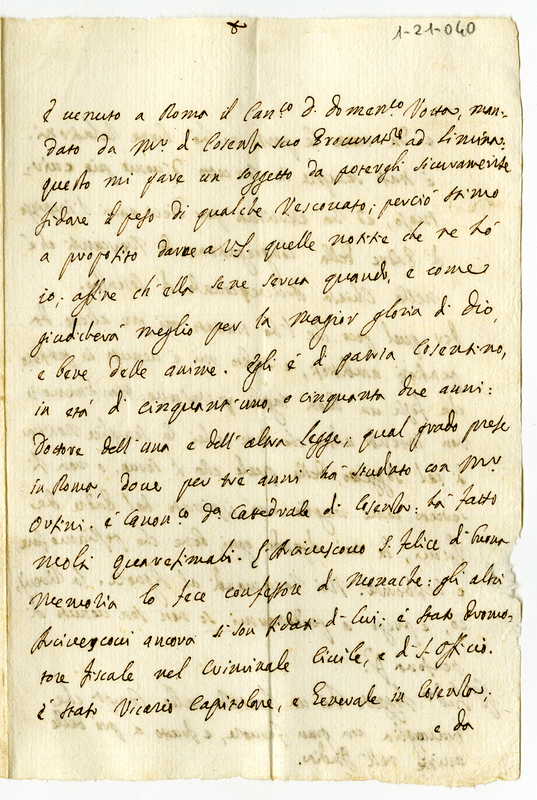 1-21-040
È venuto a Roma il Can.co D. Domen.co Votta, man-
dato da Mr. di Cosenza suo Procurat.re ad Limina.
questo mi pare un soggetto da potergli sicuramente
fidare il peso di qualche Vescovato; perciò stimo
a proposito darne a V.S. quelle notitie che ne hò
io, affine ch'ella se ne serva quando, e come
giudicherà meglio per la magior gloria di Dio,
e bene delle anime. Egli è di patria Cosentino,
in età di cinquant'uno, o cinquanta due anni:
Dottore dell'una e dell'altra legge, qual grado prese
in Roma, dove per trè anni hà studiato con Mr.
Orsini. è Canon.co da Catedrale di Cosenza: hà fatto
molti quaresimali. L'Arcivescovo S. Felice di buona
memoria lo fece confessore di Monache: gli altri
Arcivescovi ancora si son fidati di lui: è stato Promo-
tore fiscale nel Criminale Civile, e di S. Officio.
è stato Vicario Capitolare, e Generale in Cosenza;
e da